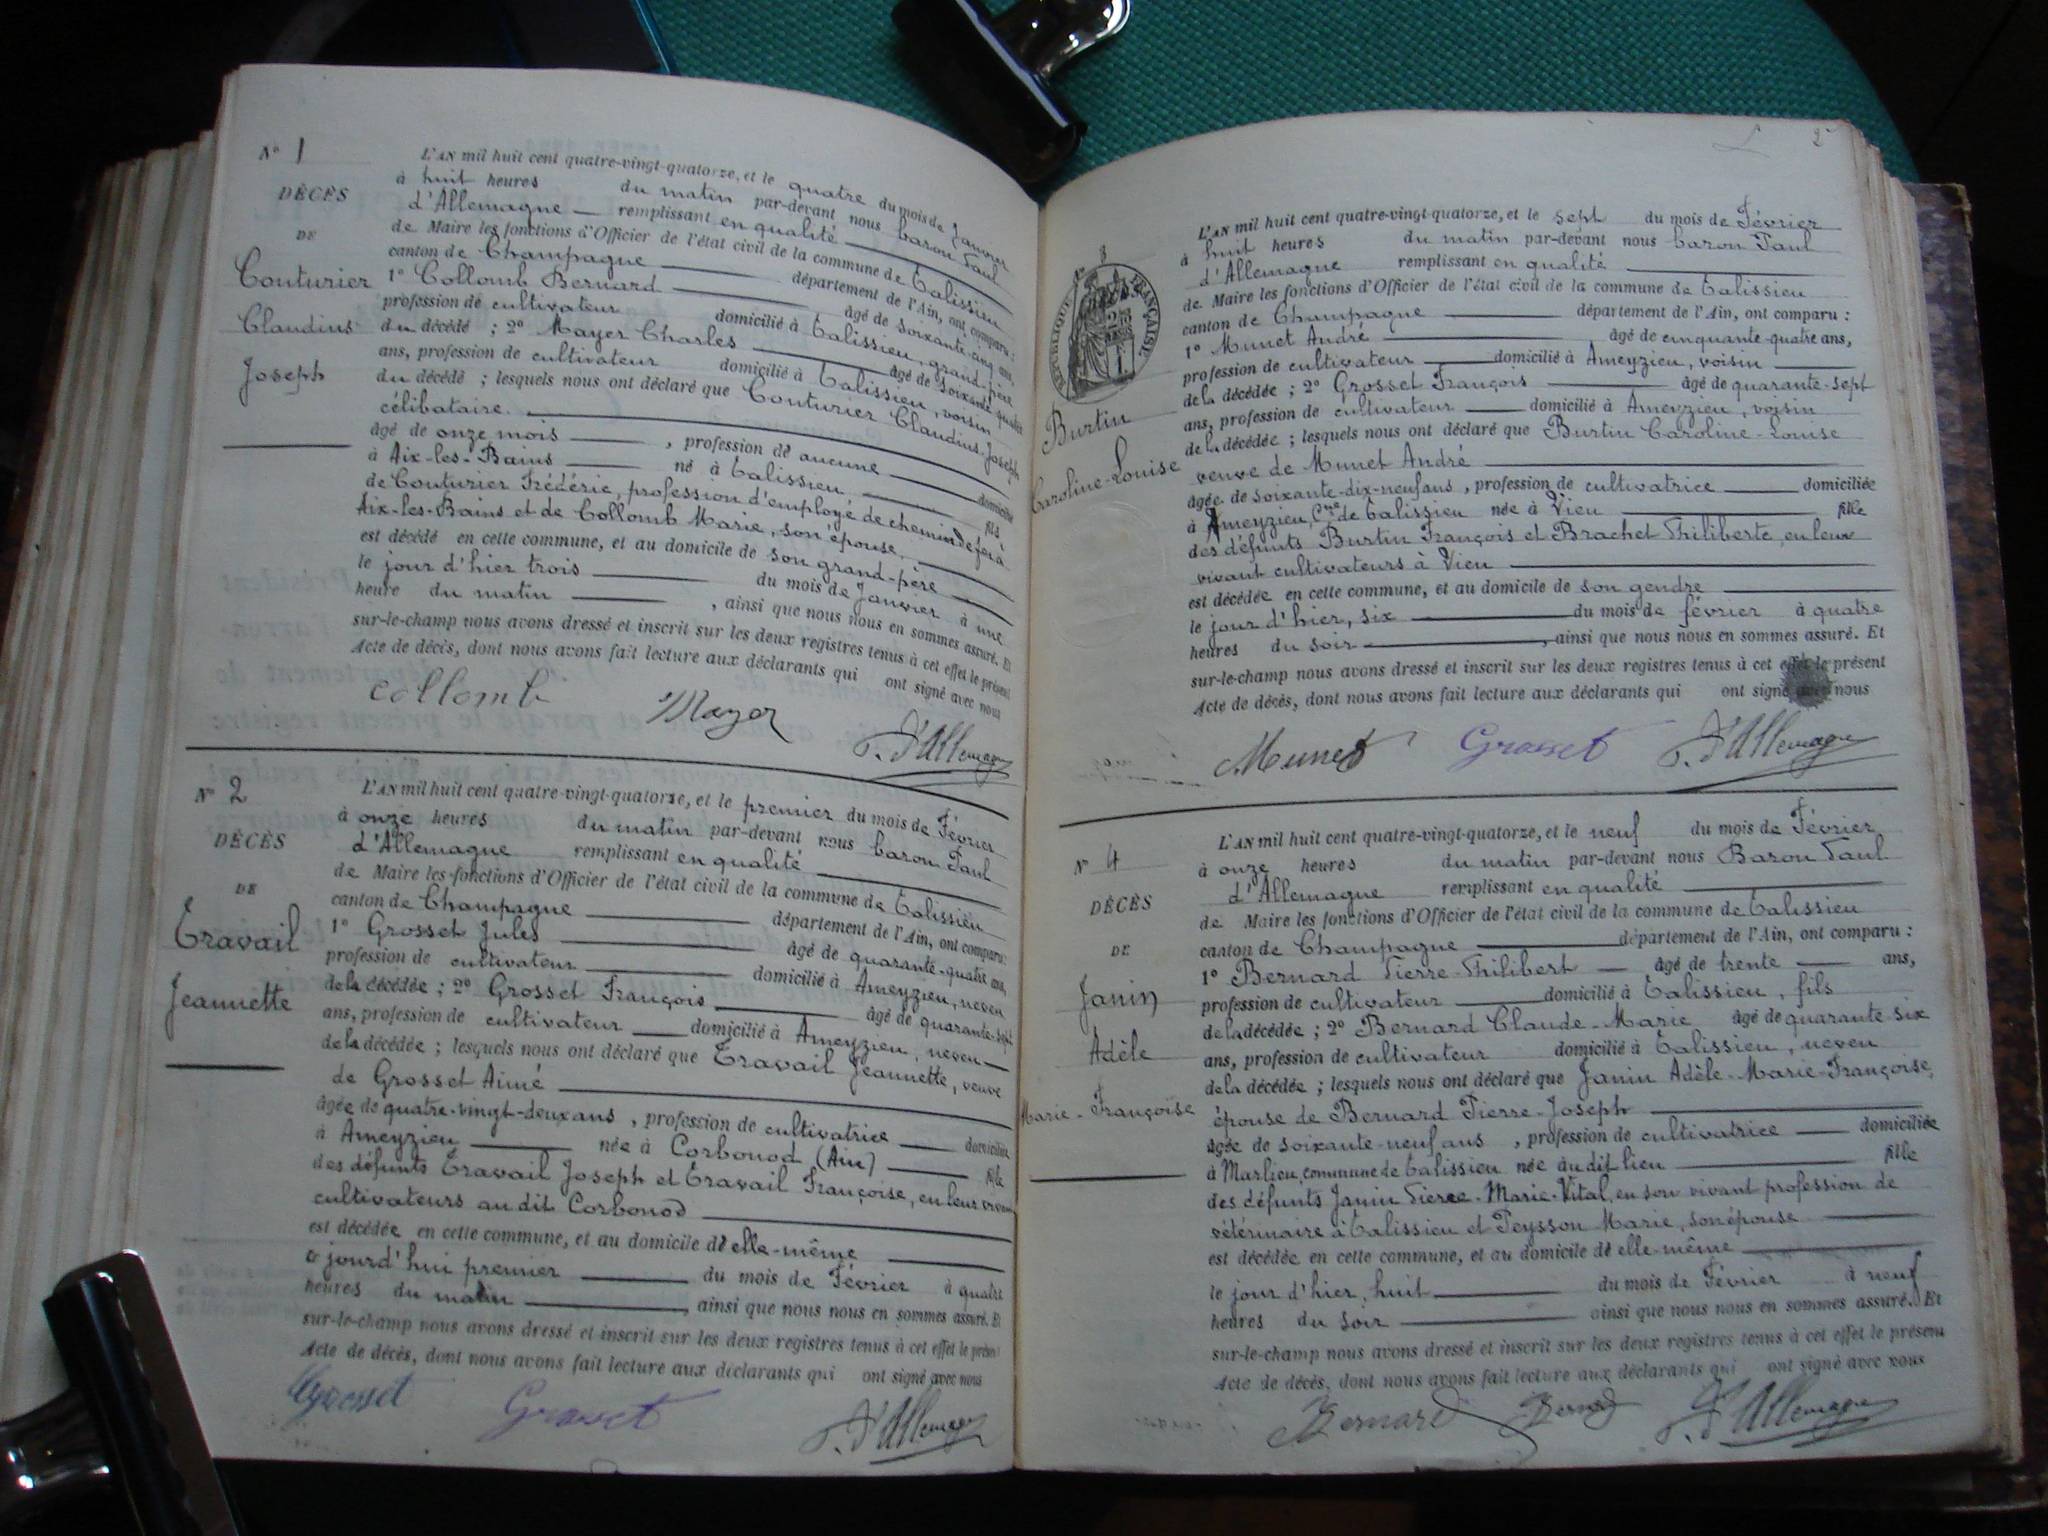 N° 1
DÉCÈS
DE
Couturier
Claudius
Joseph
L'AN mil huit cent quatre-vingt-quatorze, et le quatre du mois de Janvier
à huit heures du matin par-devant nous baron Paul
d'Allemagne remplissant en qualité
de Maire les fonctions d'Officier de l'état civil de la commune de Talissieu
canton de Champagne département de l'Ain, ont comparu :
1° Collomb Bernard âgé de soixante-cinq ans,
profession de cultivateur domicilié à Talissieu, grand-père
du décédé ; 2° Mayer Charles âgé de soixante-quatre
ans, profession de cultivateur domicilié à Talissieu, voisin
du décédé ; lesquels nous ont déclaré que Couturier Claudius-Joseph
célibataire
âgé de onze mois, profession de aucune domicilié
à Aix-les-Bains né à Talissieu, fils
de Couturier Frédéric, profession d'employé de chemin de fer à
Aix-les-Bains et de Collomb Marie, son épouse,
est décédé en cette commune, et au domicile de son grand-père
le jour d'hier trois du mois de Janvier à une
heure du matin, ainsi que nous nous en sommes assuré. Et
sur-le-champ nous avons dressé et inscrit sur les deux registres tenus à cet effet le présent
Acte de décès, dont nous avons fait lecture aux déclarants qui ont signé avec nous
Collomb Mayer P. d'Allemagne
N° 2
DÉCÈS
DE
Travail
Jeannette
L'AN mil huit cent quatre-vingt-quatorze, et le premier du mois de Février
à onze heures du matin par-devant nous baron Paul
d'Allemagne remplissant en qualité
de Maire les fonctions d'Officier de l'état civil de la commune de Talissieu
canton de Champagne département de l'Ain, ont comparu :
1° Grosset Jules âgé de quarante-quatre ans,
profession de cultivateur domicilié à Ameyzieu, neveu
de la décédée ; 2° Grosset François âgé de quarante-sept
ans, profession de cultivateur domicilié à Ameyzieu, neveu
de la décédée ; lesquels nous ont déclaré que Travail Jeannette, veuve
de Grosset Aimé
âgée de quatre-vingt-deux ans, profession de cultivatrice domiciliée
à Ameyzieu née à Corbonod (Ain) fille
des défunts Travail Joseph et Travail Françoise, en leur vivant
cultivateurs au dit Corbonod
est décédée en cette commune, et au domicile de elle-même
ce jourd'hui premier du mois de Février à quatre
heures du matin, ainsi que nous nous en sommes assuré. Et
sur-le-champ nous avons dressé et inscrit sur les deux registres tenus à cet effet le présent
Acte de décès, dont nous avons fait lecture aux déclarants qui ont signé avec nous
Grosset Grosset P. d'Allemagne
2
N° 3
RÉPUBLIQUE FRANÇAISE
Burtin
Caroline-Louise
L'AN mil huit cent quatre-vingt-quatorze, et le sept du mois de Février
à huit heures du matin par-devant nous baron Paul
d'Allemagne remplissant en qualité
de Maire les fonctions d'Officier de l'état civil de la commune de Talissieu
canton de Champagne département de l'Ain, ont comparu :
1° Munet André âgé de cinquante-quatre ans,
profession de cultivateur domicilié à Ameyzieu, voisin
de la décédée ; 2° Grosset François âgé de quarante-sept
ans, profession de cultivateur domicilié à Ameyzieu, voisin
de la décédée ; lesquels nous ont déclaré que Burtin Caroline-Louise
veuve de Munet André
âgée de soixante-dix-neuf ans, profession de cultivatrice domiciliée
à Ameyzieu, Cne de Talissieu née à Vieu fille
des défunts Burtin François et Brachet Philiberte, en leur
vivant cultivateurs à Vieu
est décédée en cette commune, et au domicile de son gendre
le jour d'hier, six du mois de février à quatre
heures du soir, ainsi que nous nous en sommes assuré. Et
sur-le-champ nous avons dressé et inscrit sur les deux registres tenus à cet effet le présent
Acte de décès, dont nous avons fait lecture aux déclarants qui ont signé avec nous
Munet Grosset P. d'Allemagne
N° 4
DÉCÈS
DE
Janin
Adèle
Marie-Françoise
L'AN mil huit cent quatre-vingt-quatorze, et le neuf du mois de Février
à onze heures du matin par-devant nous Baron Paul
d'Allemagne remplissant en qualité
de Maire les fonctions d'Officier de l'état civil de la commune de Talissieu
canton de Champagne département de l'Ain, ont comparu :
1° Bernard Pierre-Philibert âgé de trente ans,
profession de cultivateur domicilié à Talissieu, fils
de la décédée ; 2° Bernard Claude-Marie âgé de quarante-six
ans, profession de cultivateur domicilié à Talissieu, neveu
de la décédée ; lesquels nous ont déclaré que Janin Adèle-Marie-Françoise,
épouse de Bernard Pierre-Joseph
âgée de soixante-neuf ans, profession de cultivatrice domiciliée
à Marlieu, commune de Talissieu née au dit lieu fille
des défunts Janin Pierre-Marie-Vital, en son vivant profession de
vétérinaire à Talissieu et Peysson Marie, son épouse
est décédée en cette commune, et au domicile de elle-même
le jour d'hier, huit du mois de Février à neuf
heures du soir ainsi que nous nous en sommes assuré. Et
sur-le-champ nous avons dressé et inscrit sur les deux registres tenus à cet effet le présent
Acte de décès, dont nous avons fait lecture aux déclarants qui ont signé avec nous
Bernard Bernard P. d'Allemagne